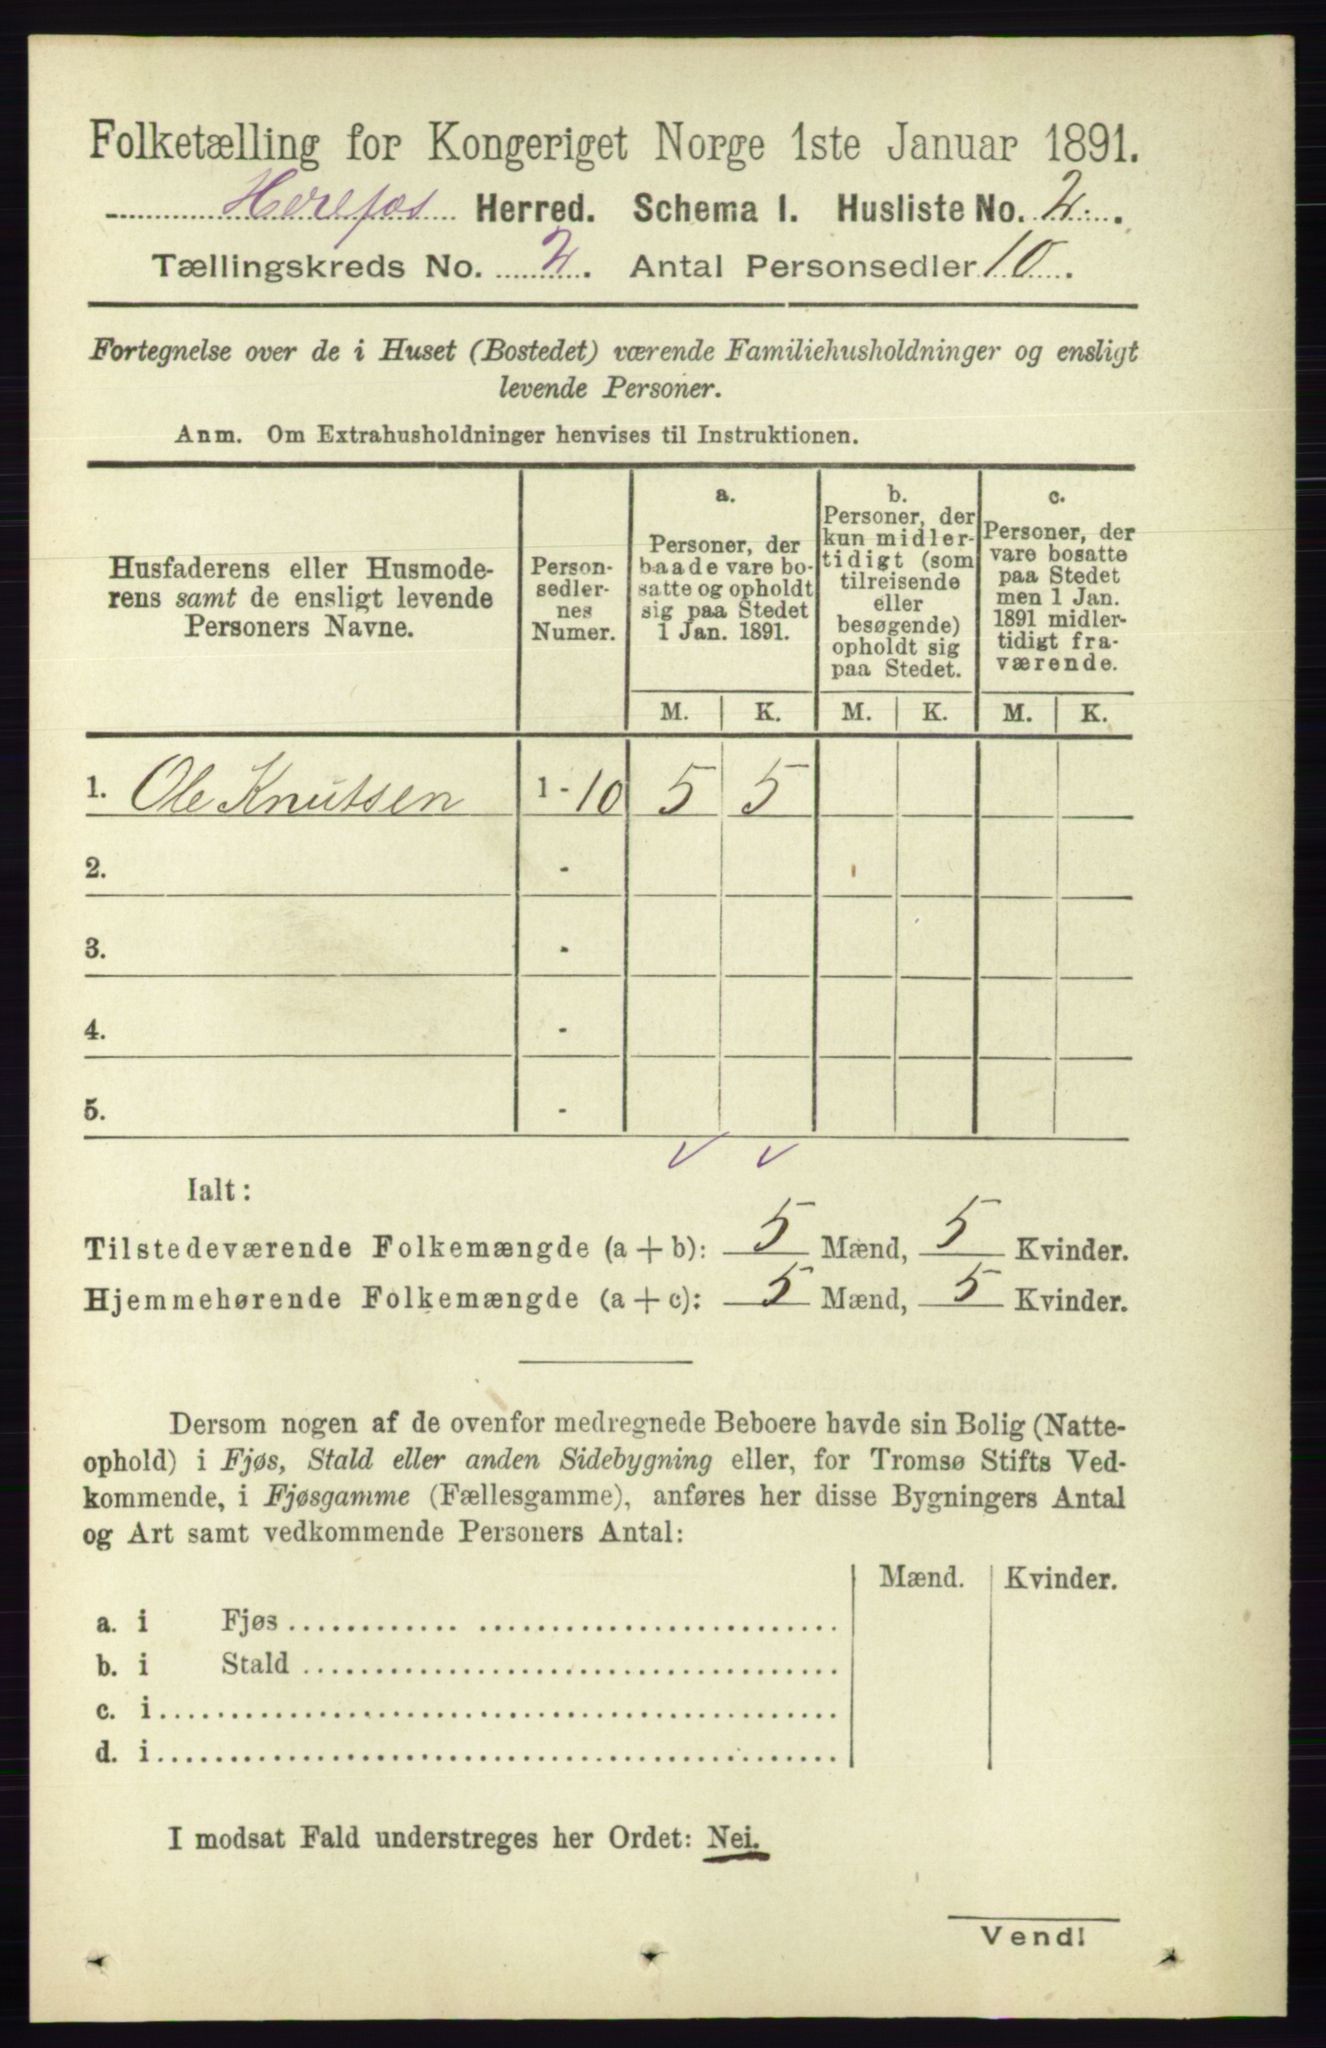 Folketælling for Kongeriget Norge 1ste Januar 1891.
Herefos Herred. Schema I. Husliste No. 2.
Tællingskreds No. 2. Antal Personsedler 10.
Fortegnelse over de i Huset (Bostedet) værende Familiehusholdninger og ensligt
levende Personer.
Anm. Om Extrahusholdninger henvises til Instruktionen.
Husfaderens eller Husmode-
rens samt de ensligt levende
Personers Navne.
Person-
sedler-
nes
Numer.
a.
Personer, der
baade vare bo-
satte og opholdt
sig paa Stedet
1 Jan. 1891.
b.
Personer, der
kun midler-
tidigt (som
tilreisende
eller
besøgende)
opholdt sig
paa Stedet.
c.
Personer, der
vare bosatte
paa Stedet
men 1 Jan.
1891 midler-
tidigt fra-
værende.
M. K. M. K. M. K.
1. Ole Knutsen 1 - 10 5 5
2. -
3. -
4. -
5. -
Ialt:
Tilstedeværende Folkemængde (a + b): 5 Mænd, 5 Kvinder.
Hjemmehørende Folkemængde (a + c): 5 Mænd, 5 Kvinder.
Dersom nogen af de ovenfor medregnede Beboere havde sin Bolig (Natte-
ophold) i Fjøs, Stald eller anden Sidebygning eller, for Tromsø Stifts Ved-
kommende, i Fjøsgamme (Fællesgamme), anføres her disse Bygningers Antal
og Art samt vedkommende Personers Antal:
Mænd. Kvinder.
a. i Fjøs
b. i Stald
c. i
d. i
I modsat Fald understreges her Ordet: Nei.
Vend!